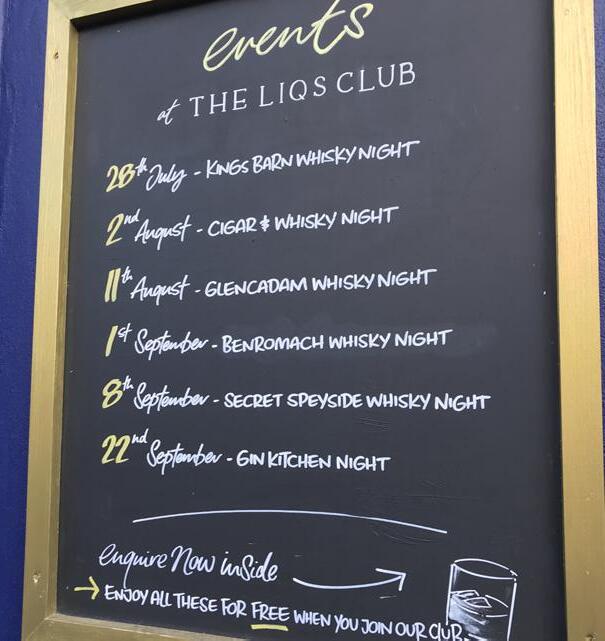 events
at THE LIQS CLUB
28th July - KINGS BARN WHISKY NIGHT
2nd August - CIGAR & WHISKY NIGHT
11th August - GLENCADAM WHISKY NIGHT
1st September - BENROMACH WHISKY NIGHT
8th September - SECRET SPEYSIDE WHISKY NIGHT
22nd September - GIN KITCHEN NIGHT
enquire Now inside
→ ENJOY ALL THESE FOR FREE WHEN YOU JOIN OUR CLUB.